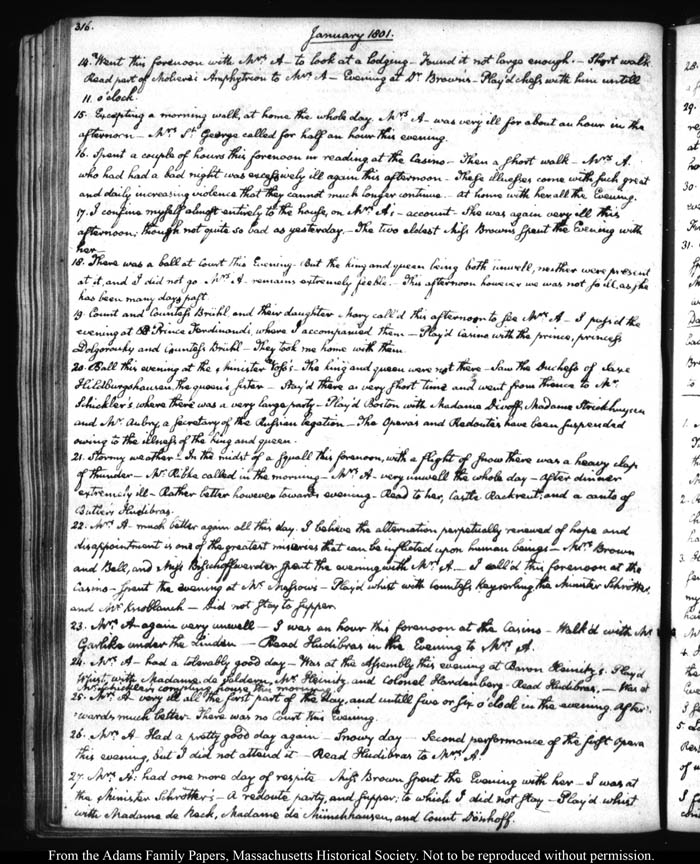 316.
January 1801.
14. Went this forenoon with Mrs. A— to look at a lodging— Found it not large enough.— Short walk
Read part of Moliere's Amphytrion to Mrs A— Evening at Dr Browns— Play'd chess with him untill
11 o'clock.
15. Excepting a morning walk, at home the whole day. Mrs A— was very ill for about an hour in the
afternoon— Mrs. St. George called for half an hour this evening.
16. Spent a couple of hours this forenoon in reading at the Casino— Then a short walk— Mrs. A.
who had had a bad night was excessively ill again this afternoon— These illnesses come with such great
and daily increasing violence that they cannot much longer continue. at home with her all the Evening.
17. I confine myself almost entirely to the house, on Mrs. A's— account— She was again very ill this
afternoon; though not quite so bad as yesterday.— The two eldest Miss Browns spent the Evening with
her.
18. There was a ball at Court this Evening. But the king and queen being both unwell, neither were present
at it, and I did not go. Mrs A— remains extremely feeble.— This afternoon however was not so ill, as she
has been many days past.
19. Count and Countess Brühl and their daughter Mary call'd this afternoon to see Mrs A— I pass'd the
evening at Prince Ferdinands, where I accompanied them— Play'd Casino with the prince, princess
Dolgorouky and Countess Brühl— They took me home with them.
20. Ball this evening at the Minister Voss's. The king and queen were not there— Saw the Duchess of Saxe
Hildburghausen the queen's sister— Stay'd there a very short time and went from thence to Mr.
Schickler's, where there was a very large party— Play'd Boston with Madame Divoff, Madame
and Mr. Aubry, a Secretary of the Russian legation— The Operas and Redoutes have been suspended
owing to the illness of the king and queen.
21. Stormy weather— In the midst of a squall this forenoon, with a flight of snow there was a heavy clap
of thunder— Mr. Ribke called in the morning— Mrs A— very unwell the whole day— After dinner
extremely ill— Rather better however towards evening— Read to her, Castle Rackrent, and a canto of
Butler's Hudibras.
22. Mrs. A— much better again all this day. I believe the alternation perpetually renewed of hope and
disappointment is one of the greatest miseries that can be inflicted upon human beings— Mrs. Brown
and Bell, and Miss Bischoffwerder spent the evening with Mrs. A— I call'd this forenoon at the
Casino— spent the evening at Mr. — Play'd whist with Countess Keyserling the Minister Schrötter,
and Mr. Knoblauch— Did not stay to supper.
23. Mrs. A— again very unwell— I was an hour this forenoon at the Casino— Walk'd with Mr
Garlike under the Linden— Read Hudibras in the Evening to Mrs. A.
24. Mrs. A— had a tolerably good day— Was at the Assembly this evening at Baron Heinitz's. Play'd
Whist, with Madame de Geldern, Mr. Heinitz and Colonel Hardenberg. Read Hudibras,— Was at
Mr. Schickler's compting house this morning.
25. Mrs. A— very ill all the first part of the day, and untill five or six o'clock in the evening. After:
:wards much better. There was no Court this Evening.
26. Mrs. A Had a pretty good day again— Snowy day— Second performance of the first Opera
this evening, but I did not attend it— Read Hudibras to Mrs. A.
27. Mrs. A: had one more day of respite. Miss Brown spent the Evening with her— I was at
the Minister Schrötter's— A redoute party, and supper; to which I did not stay— Play'd whist
with Madame de Reck, Madame de Münchhausen, and Count Dönhoff.
From the Adams Family Papers, Massachusetts Historical Society. Not to be reproduced without permission.